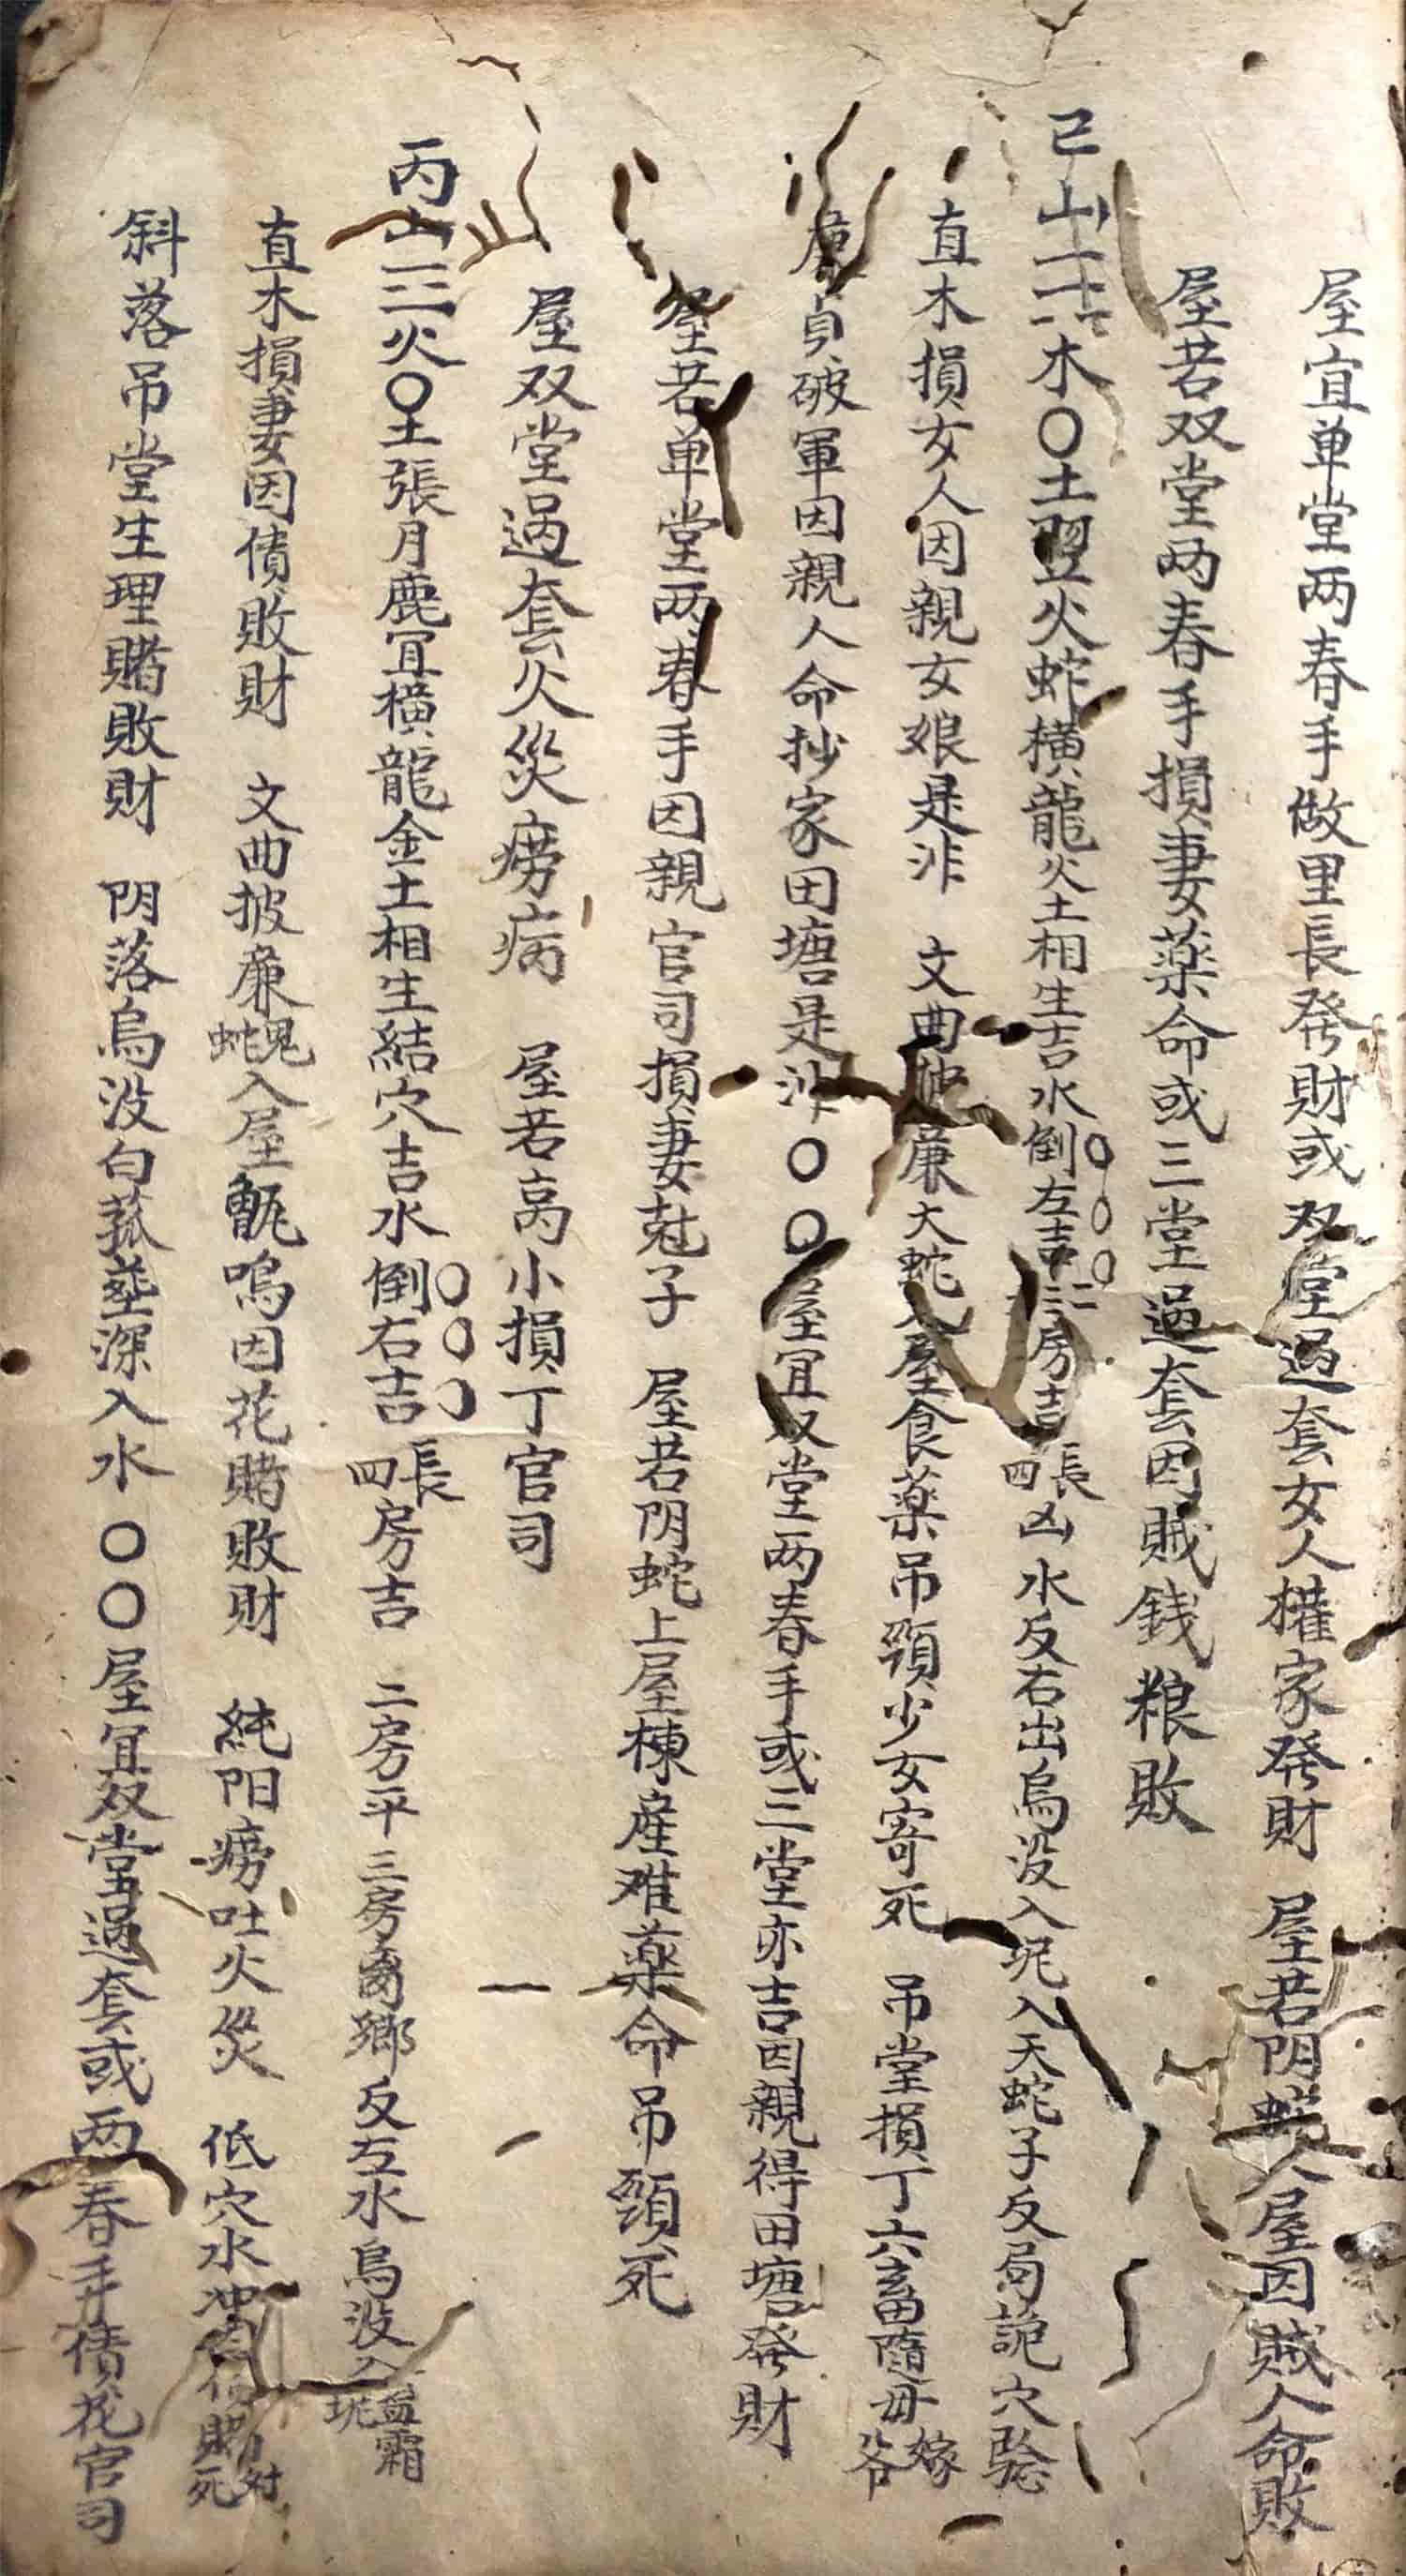 屋宜单堂两春手做里長發財或双堂過套女人權家發財　屋若阴蛇入屋因賊人命敗
屋若双堂两春手損妻藥命或三堂過套因賊錢粮敗
巳山二木〇土翌火蛇横龍火土相生吉水倒左吉二三房吉長四凶水反右出烏没入坭入天蛇子反局詭穴騐
直木損女人因親女娘是非　文曲廉大蛇入屋食藥吊頸少女寄死　吊堂損丁六畜隨母嫁爷
廉貞破軍因親人命抄家田塘是非〇〇屋宜双堂两春手或三堂亦吉因親得田塘發財
屋若单堂两春手因親官司損妻尅子　屋若阴蛇上屋棟産难藥命吊頸死
屋双堂過套火災癆病　屋若高小損丁官司
丙山二火〇土張月鹿宜横龍金土相生結穴吉水倒右吉長四房吉　二房平三房离鄉反左水烏没入坭
直木損妻因債敗財　文曲披廉蛇入屋甑鳴因花賭敗財　純阳癆吐火災　低穴水賭死
斜落吊堂生理賭敗財　阴落烏没勾菰塟深入水〇〇屋宜双堂過套或两春手債花官司